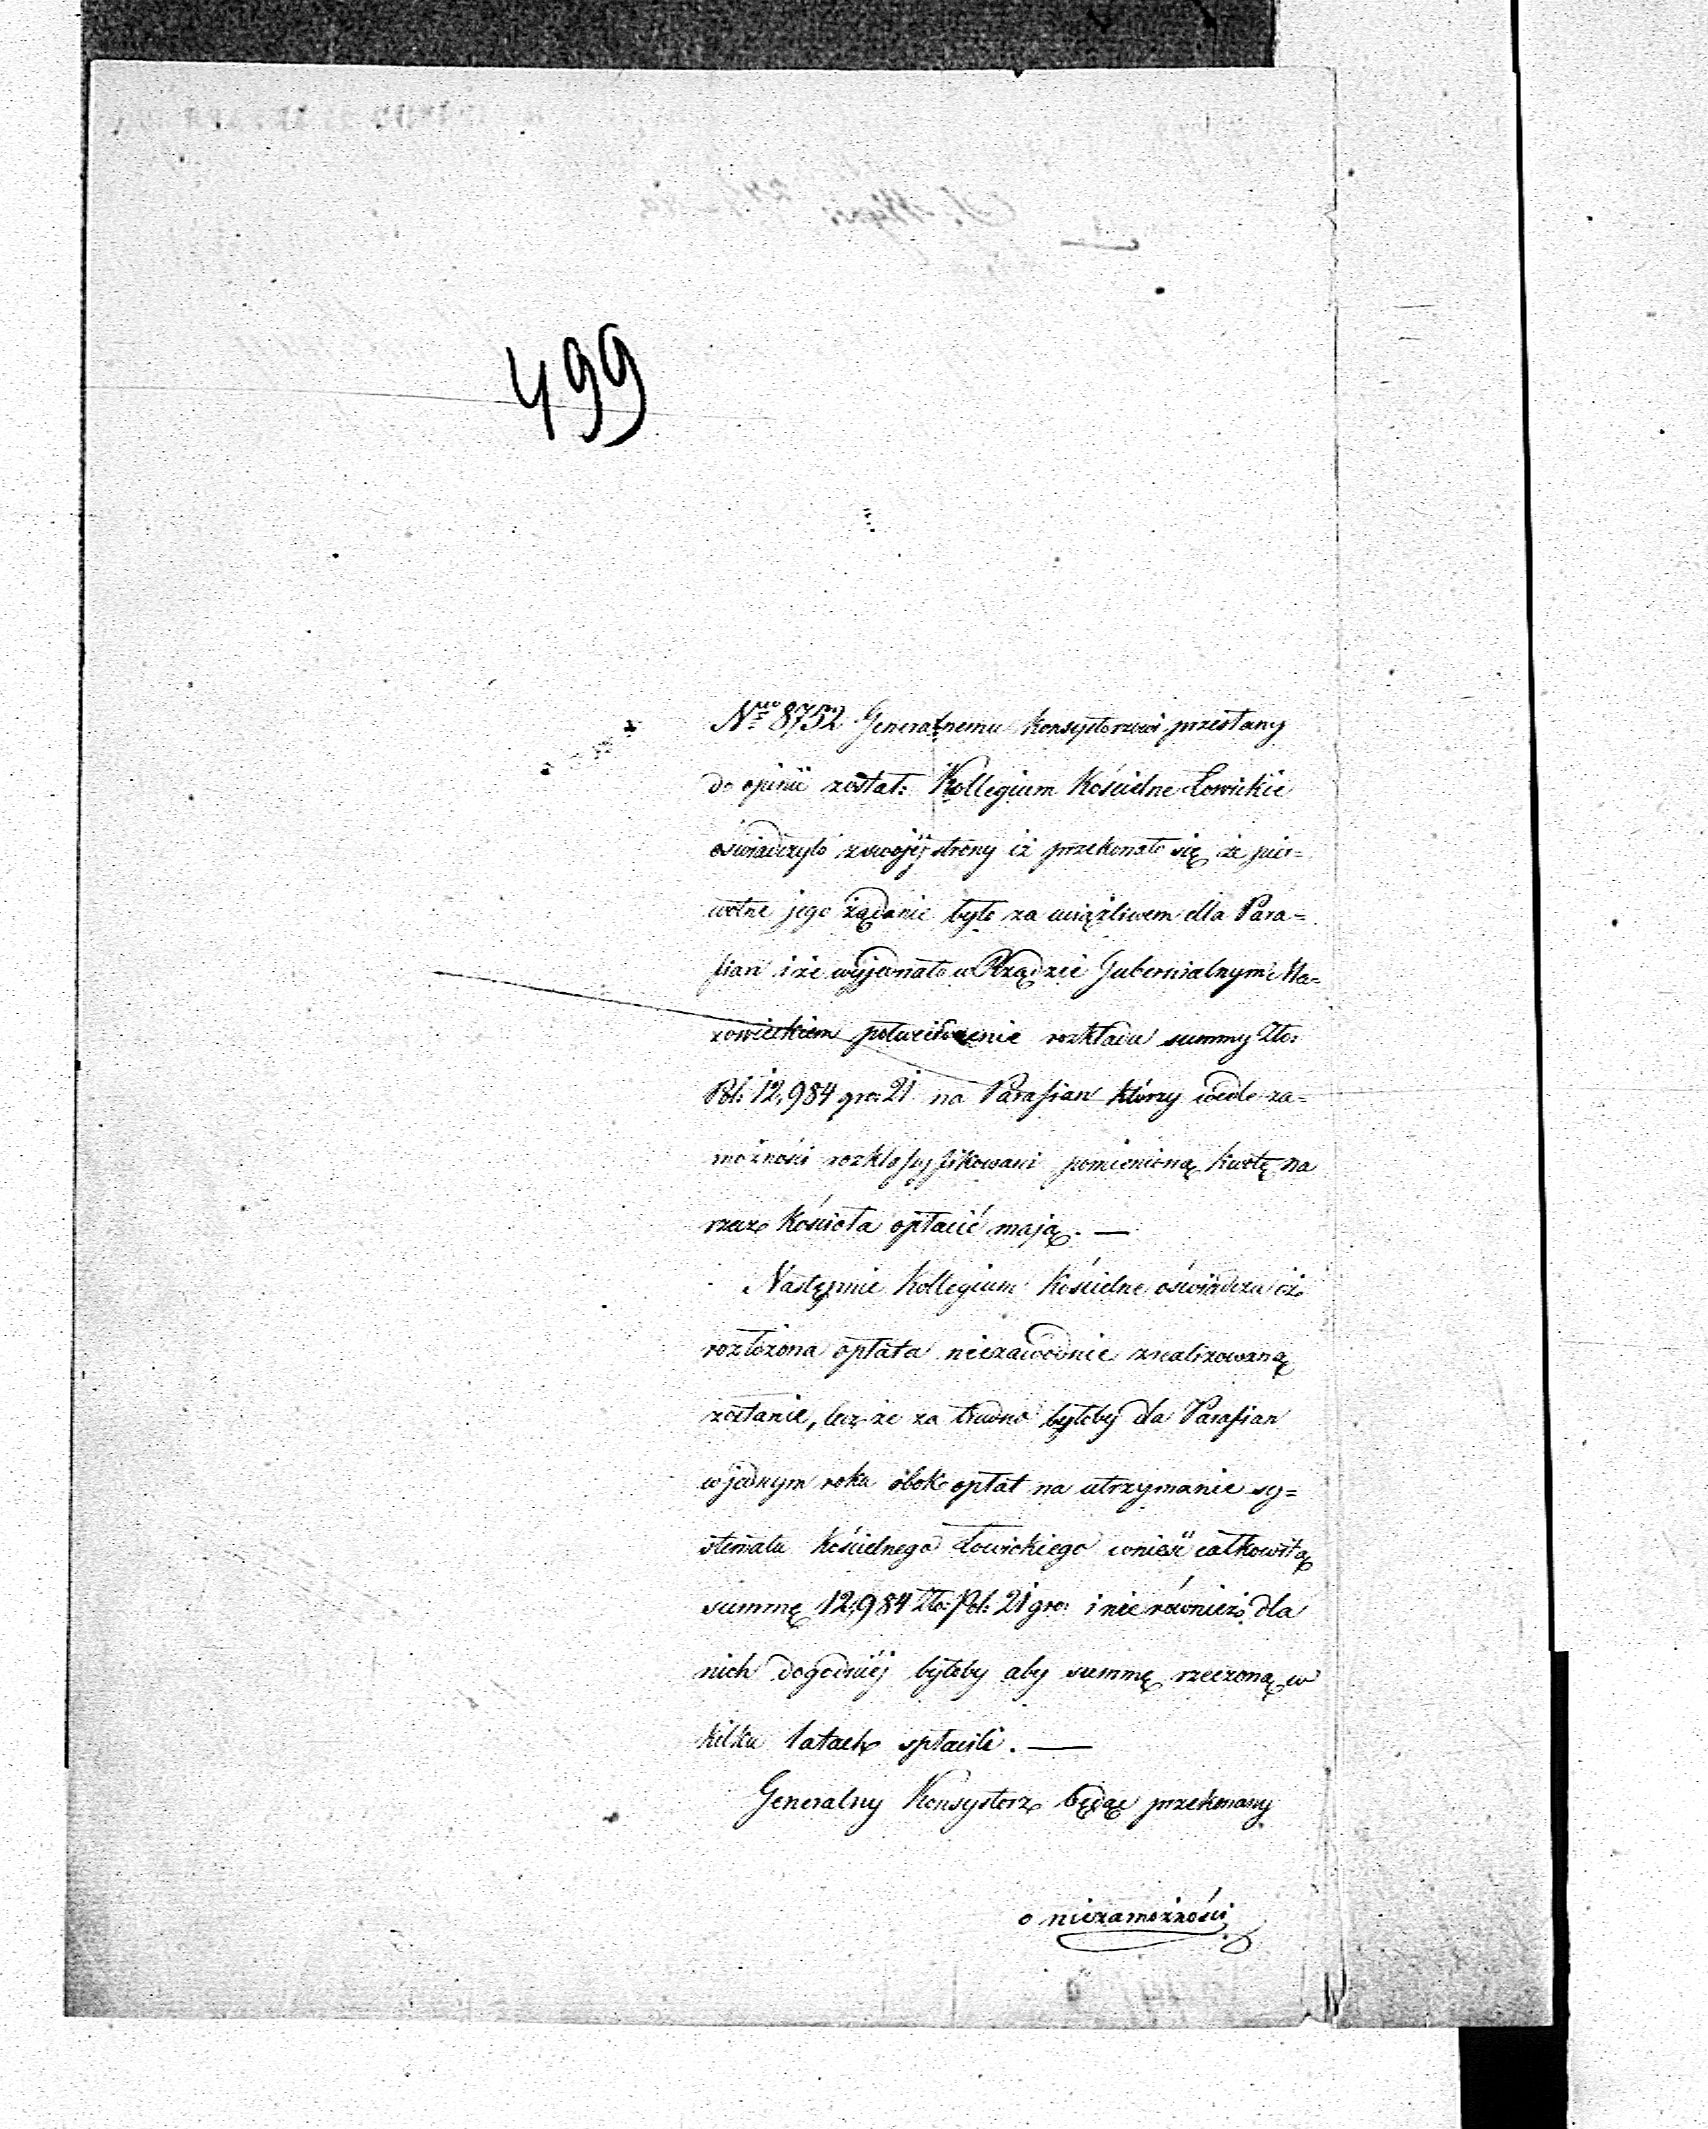 499
Nro 8752 Generalnemu Konsystorzowi przesłany
do opinii został: Kollegium Kościelne Łowickie
oświadczyło z swojéj strony iż przekonało się że pier=
wotne jego żądanie było za uciążliwem dla Para=
fian i że wyjednało w Rządzie Gubernialnym Ma=
zowieckiem potwierdzenie rozkładu summy Zło:
Pol: 12,984 gro: 21 na Parafian którzy wedle za=
możności rozklassyfikowani pomienioną kwotę na
rzecz Kościoła opłacić mają. —
Następnie Kollegium Kościelne oświadcza iż
rozłożona opłata niezawodnie zrealizowaną
zostanie, lecz że za trudno byłoby dla Parafian
w jednym roku obok opłat na utrzymanie sy=
stematu Kościelnego Łowickiego wnieść całkowitą
summę 12,984 Zło: Pol: 21 gro: i nierównież dla
nich dogodniéj byłoby aby summę rzeczoną w
kilku latach spłacili. —
Generalny Konsystorz będąc przekonany
o niezamożności